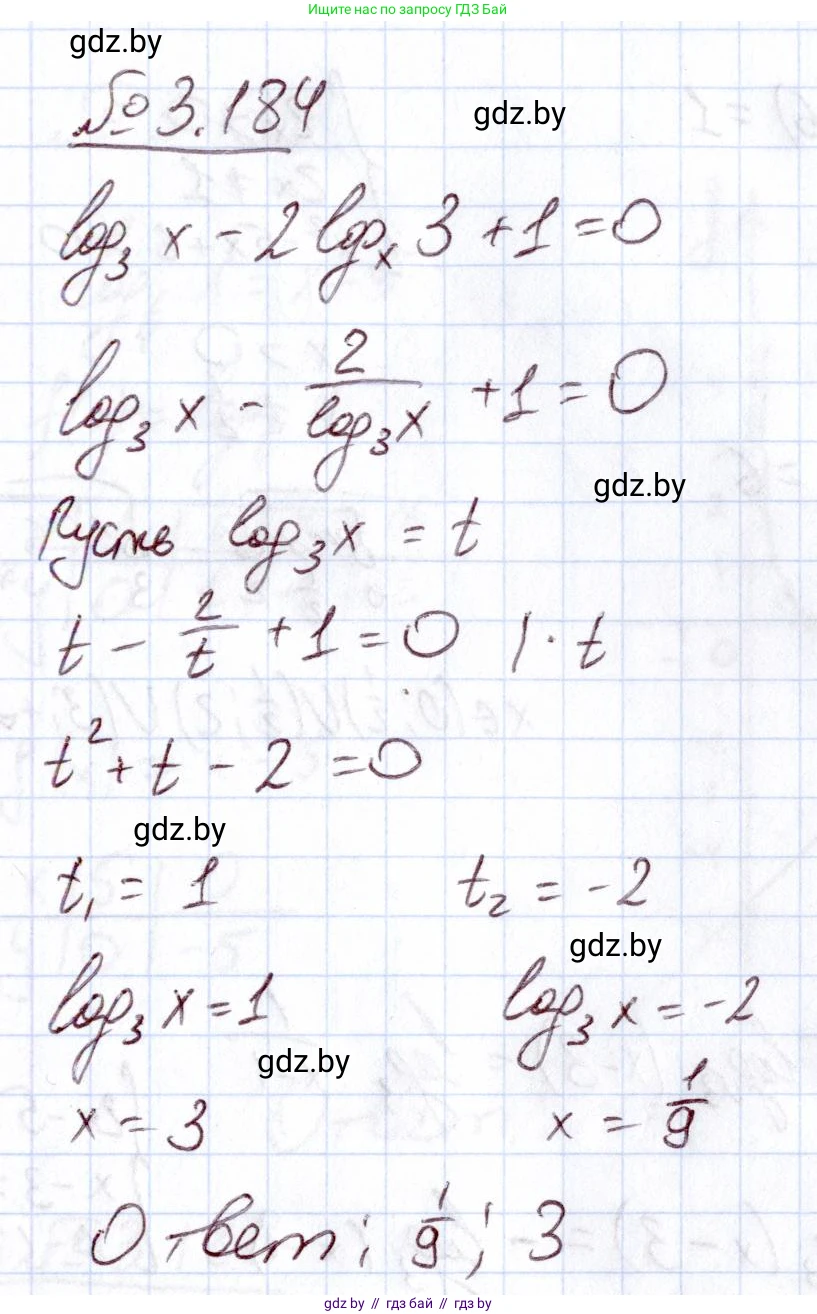 Ищите нас по запросу ГДЗ Бай
gdz.by
№ 3.184
gdz.by
log₃ x - 2 logₓ 3 + 1 = 0
log₃ x - 2/log₃ x + 1 = 0
gdz.by
Пусть log₃ x = t
t - 2/t + 1 = 0 | · t
t² + t - 2 = 0
gdz.by
t₁ = 1 t₂ = -2
gdz.by
log₃ x = 1 log₃ x = -2
gdz.by
x = 3 x = 1/9
Ответ: 1/9; 3
gdz.by // гдз бай // гдз by